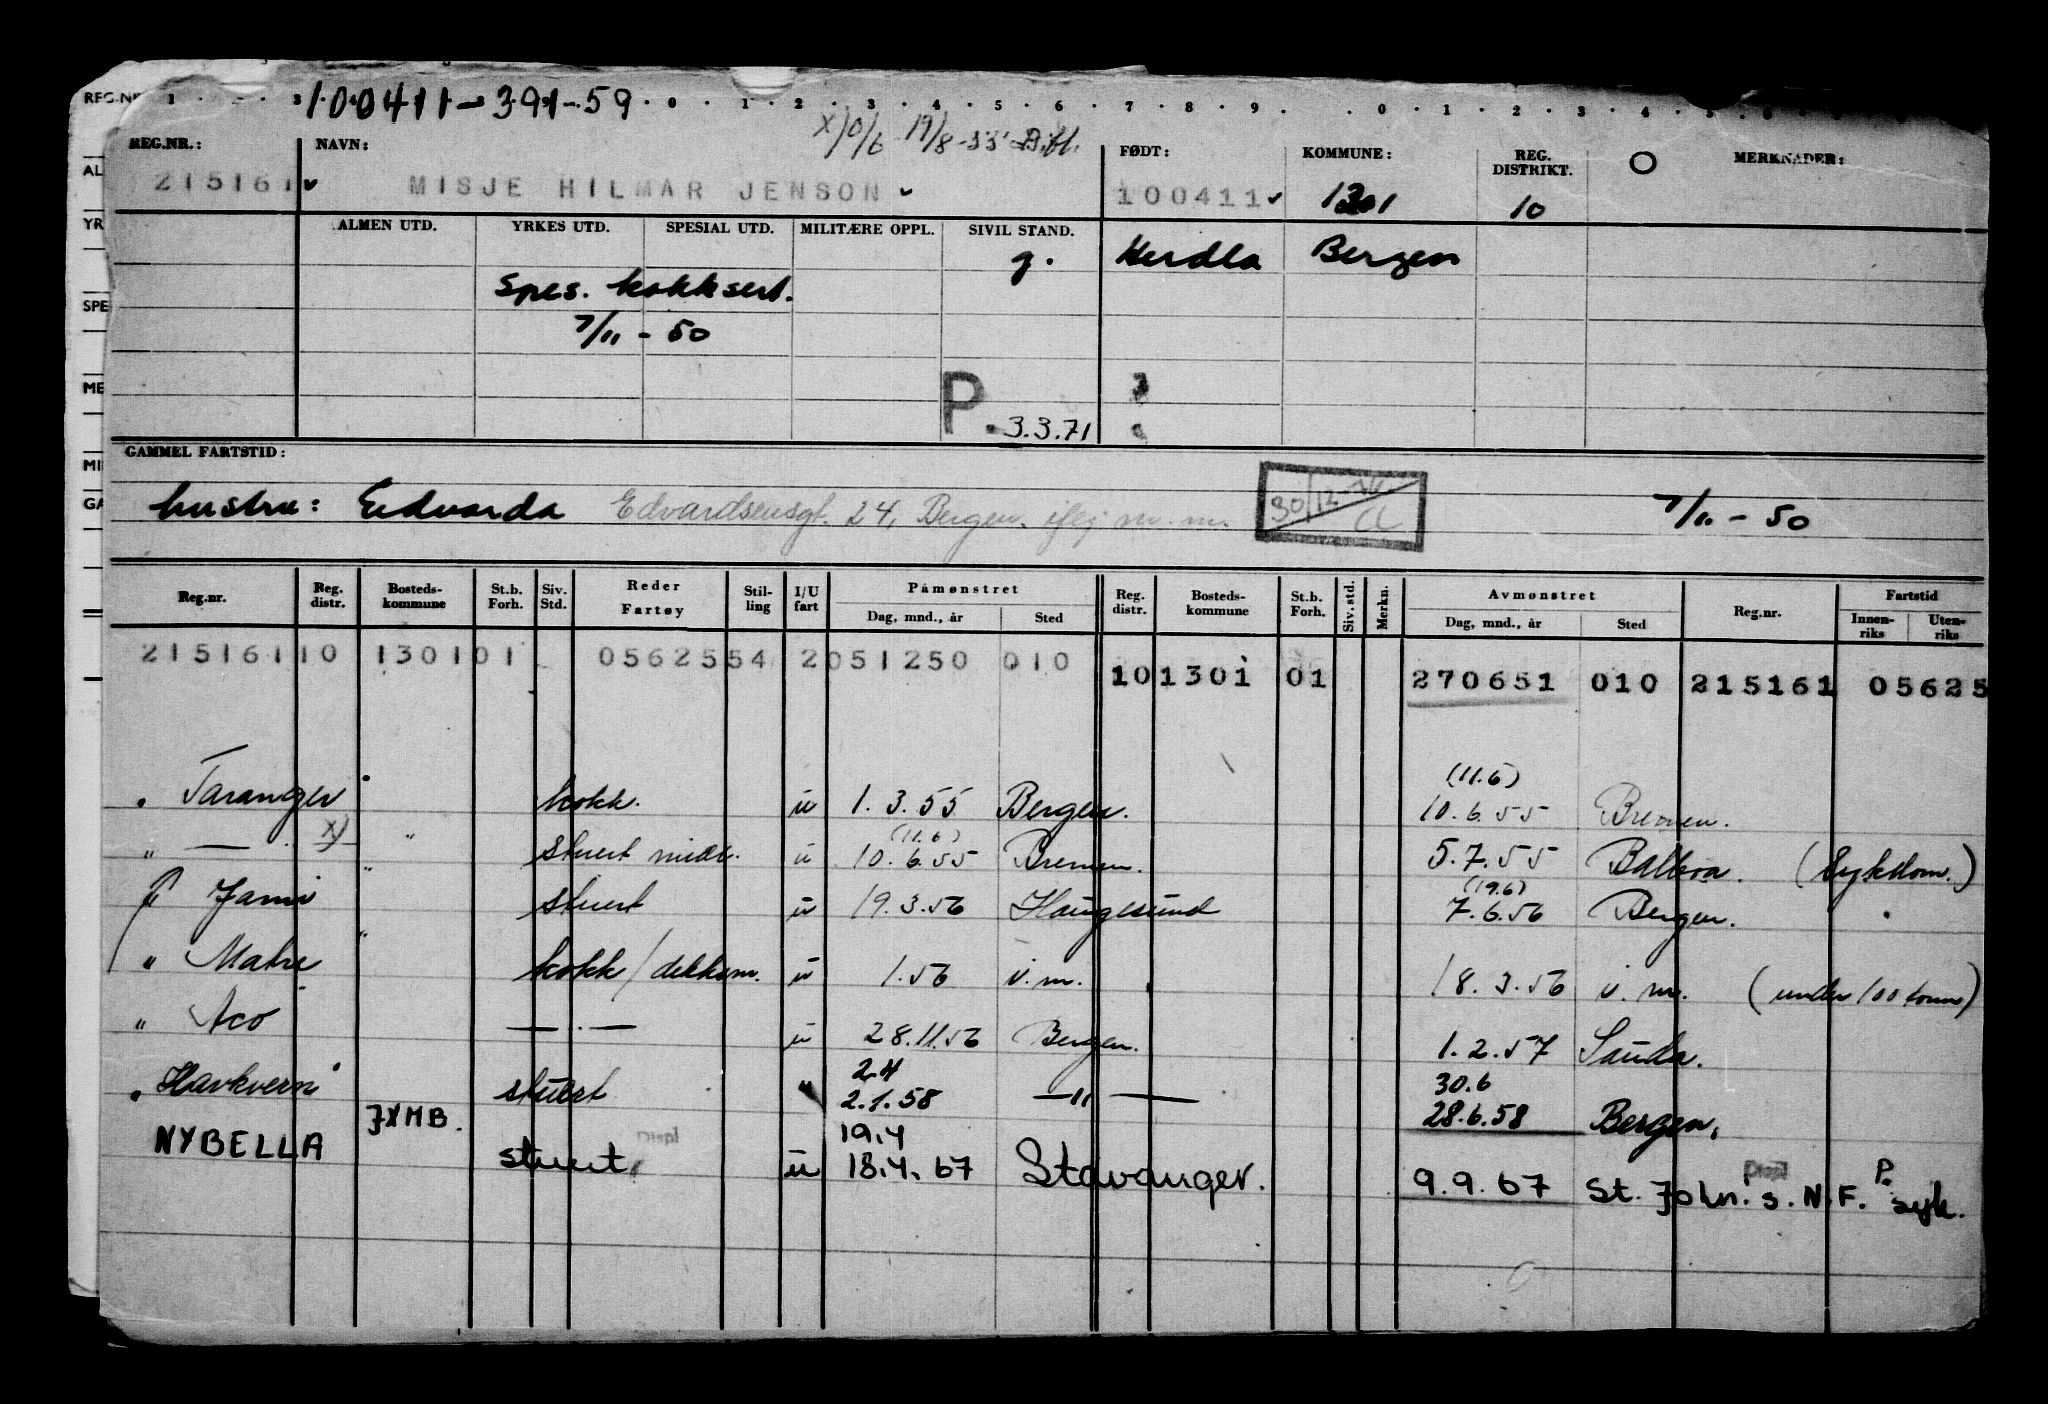 100411-391-59
X) 10/6 19/8-55
REG.NR.: NAVN: FØDT: KOMMUNE: REG. DISTRIKT. O MERKNADER:
215161 MISJE HILMAR JENSON 100411 1301 10
ALMEN UTD. YRKES UTD. SPESIAL UTD. MILITÆRE OPPL. SIVIL STAND.
g. Herdla Bergen
Spes. kokksert.
7/11 - 50
P. 3.3.71
GAMMEL FARTSTID:
hustru: Edvarda Edvardsensgt. 24, Bergen. 30/12 7/11 - 50
Reg.nr. Reg. distr. Bosteds-kommune St.b. Forh. Siv. Std. Reder Fartøy Stil-ling I/U fart Påmønstret Dag, mnd., år Sted Reg. distr. Bosteds-kommune St.b. Forh. Siv. std. Merkn. Avmønstret Dag, mnd., år Sted Reg.nr. Fartstid Innen-riks Uten-riks
215161 10 1301 01 0562554 2 051250 010 10 1301 01 270651 010 215161 05625
(11.6)
" Taranger kokk. u 1.3.55 Bergen. 10.6.55 Bremen.
(11.6)
" — X) " stuert midl. u 10.6.55 Bremen. 5.7.55 Balboa. (Sykdom.)
(19.6)
Jami stuert u 19.3.56 Haugesund 7.6.56 Bergen.
" Matre kokk/dekksm. u 1.56 i.m. 18.3.56 i.m. (under 100 tonn)
" Aco —.— u 28.11.56 Bergen. 1.2.57 Sauda.
2.4 30.6
" Havkvern stuert " 2.1.58 —"— 28.6.58 Bergen.
JXMB. 19.4
NYBELLA stuert Displ u 18.4.67 Stavanger. 9.9.67 St. John's. N.F. Displ P. syk.